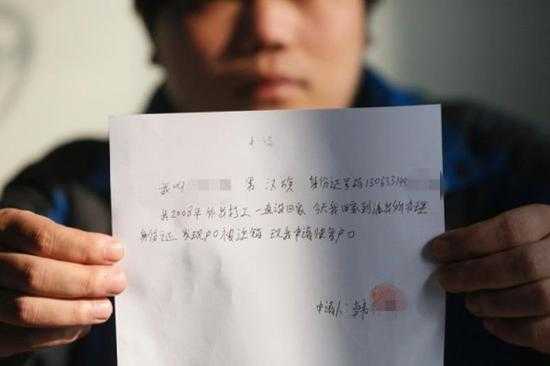 申请
我叫 男 汉族 身份证号码1306
从2008年外出打工一直没回家 今天我回家到派出所办理
身份证 发现户口被注销 现在申请恢复户口
申请人: